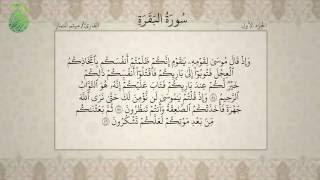 الجزء الأول
سُورَةُ البَقَرَةِ
القارئ/ ميثم التمار
وَإِذْ قَالَ مُوسَىٰ لِقَوْمِهِ يَٰقَوْمِ إِنَّكُمْ ظَلَمْتُمْ أَنفُسَكُم بِٱتِّخَاذِكُمُ
ٱلْعِجْلَ فَتُوبُوٓا۟ إِلَىٰ بَارِئِكُمْ فَٱقْتُلُوٓا۟ أَنفُسَكُمْ ذَٰلِكُمْ
خَيْرٌ لَّكُمْ عِندَ بَارِئِكُمْ فَتَابَ عَلَيْكُمْ إِنَّهُۥ هُوَ ٱلتَّوَّابُ
ٱلرَّحِيمُ ۝ وَإِذْ قُلْتُمْ يَٰمُوسَىٰ لَن نُّؤْمِنَ لَكَ حَتَّىٰ نَرَى ٱللَّهَ
جَهْرَةً فَأَخَذَتْكُمُ ٱلصَّٰعِقَةُ وَأَنتُمْ تَنظُرُونَ ۝ ثُمَّ بَعَثْنَٰكُم
مِّنۢ بَعْدِ مَوْتِكُمْ لَعَلَّكُمْ تَشْكُرُونَ ۝